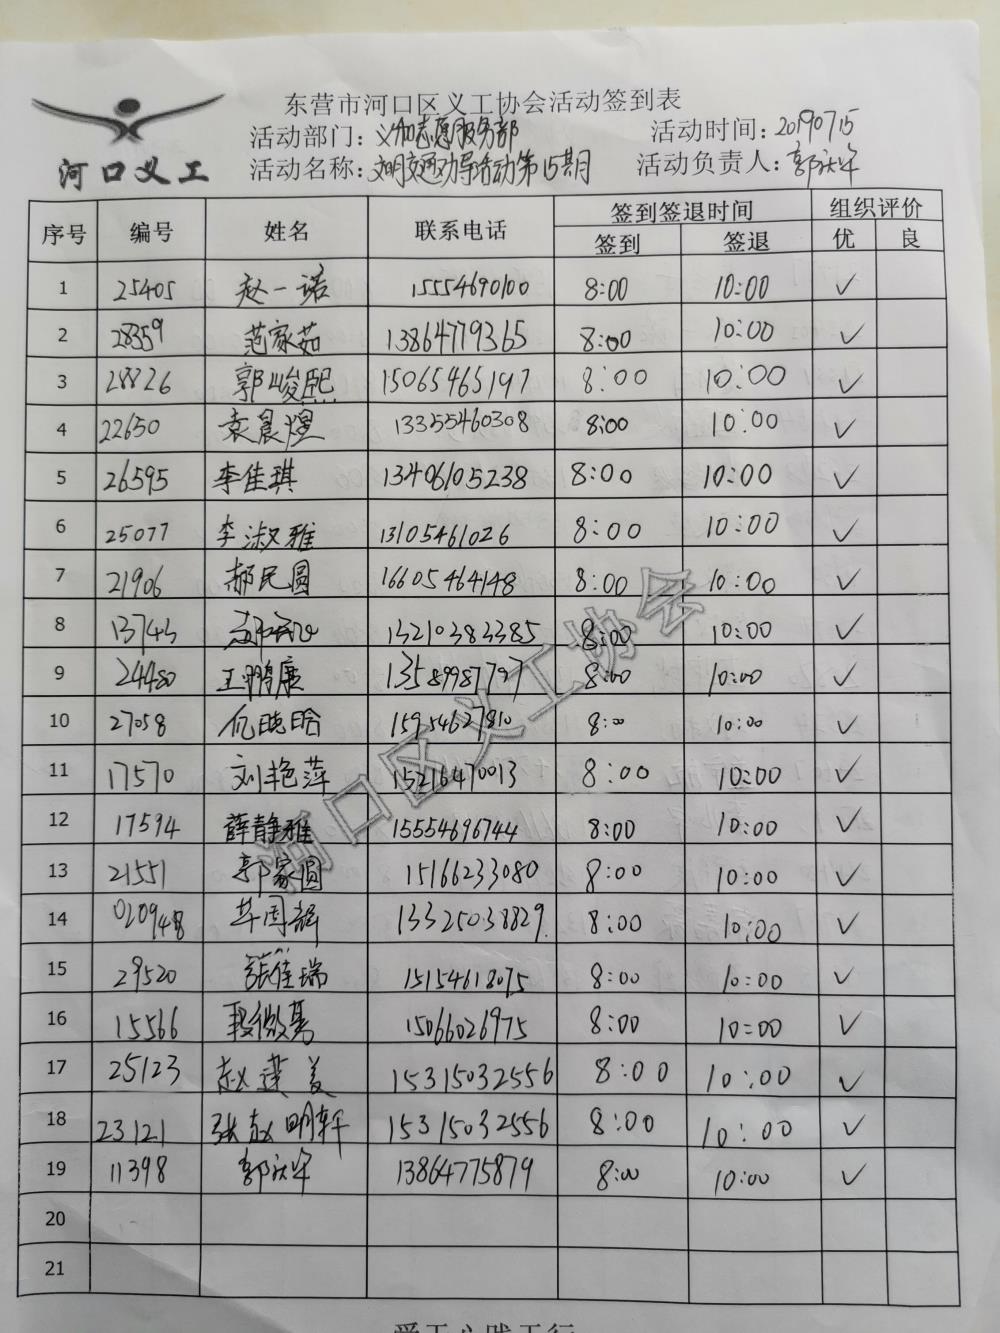 东营市河口区义工协会活动签到表
活动部门：义加志愿服务部 活动时间：20190715
河口义工
活动名称：文明交通劝导活动第15期 活动负责人：郭庆军
序号 编号 姓名 联系电话 签到签退时间 组织评价
签到 签退 优 良
1 25405 赵一诺 15554690100 8:00 10:00 ✓
2 28359 范家茹 13864779365 8:00 10:00 ✓
3 28826 郭峻熙 15065465197 8:00 10:00 ✓
4 22650 袁晨煜 13355460308 8:00 10:00 ✓
5 26595 李佳琪 13406105238 8:00 10:00 ✓
6 25077 李淑雅 13105461026 8:00 10:00 ✓
7 21906 郝民圆 16605464148 8:00 10:00 ✓
8 13743 13210383385 8:00 10:00 ✓
9 24480 王鹏康 13589987797 8:00 10:00 ✓
10 27058 倪晓晗 15954627810 8:00 10:00 ✓
11 17570 刘艳萍 15216470013 8:00 10:00 ✓
12 17594 薛静雅 15554696744 8:00 10:00 ✓
13 21551 郭家圆 15166233080 8:00 10:00 ✓
14 020948 13325038829 8:00 10:00 ✓
15 29520 张佳瑞 15154618075 8:00 10:00 ✓
16 15566 段微 15066026975 8:00 10:00 ✓
17 25123 赵莲美 15315032556 8:00 10:00 ✓
18 23121 张赵明轩 15315032556 8:00 10:00 ✓
19 11398 郭庆军 13864775879 8:00 10:00 ✓
20
21
河口区义工协会